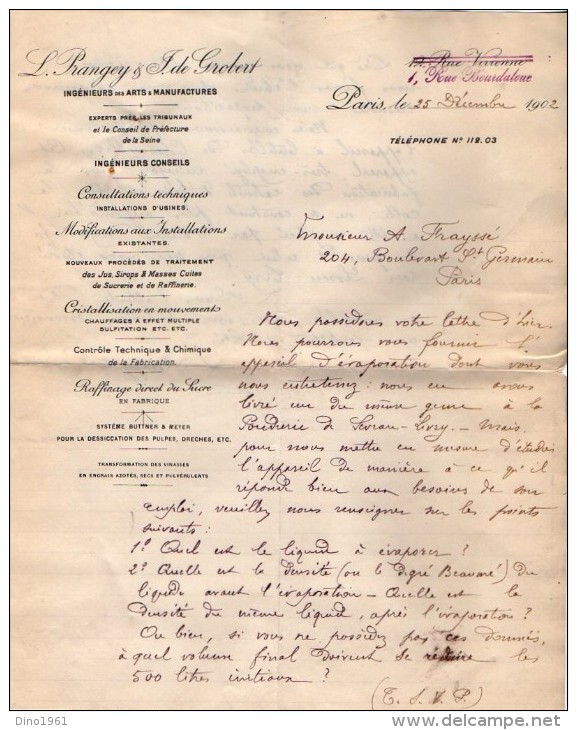 L. Prangey & J. de Grobert
INGÉNIEURS DES ARTS & MANUFACTURES
EXPERTS PRÈS LES TRIBUNAUX
et le Conseil de Préfecture
de la Seine
INGÉNIEURS CONSEILS
Consultations techniques
INSTALLATIONS D'USINES.
Modifications aux Installations
EXISTANTES.
NOUVEAUX PROCÉDÉS DE TRAITEMENT
des Jus, Sirops & Masses Cuites
de Sucrerie et de Raffinerie.
Cristallisation en mouvement
CHAUFFAGES À EFFET MULTIPLE
SULFITATION ETC. ETC.
Contrôle Technique & Chimique
de la Fabrication.
Raffinage direct du Sucre
EN FABRIQUE
SYSTÈME BUTTNER & MEYER
POUR LA DESSICCATION DES PULPES, DRECHES, ETC.
TRANSFORMATION DES VINASSES
EN ENGRAIS AZOTÉS, SECS ET PULVÉRULENTS
Rue Vivienne
1, Rue Bourdaloue
Paris, le 25 Décembre 1902
TÉLÉPHONE No 112.03
Monsieur A. Frayssé
204, Boulevart St Germain
Paris
Nous possédons votre lettre d'hier.
Nous pourrons vous fournir l'
appareil d'évaporation dont vous
nous entretenez : nous en avons
livré un du même genre à la
Poudrerie de Sevran-Livry. – Mais,
pour nous mettre en mesure d'étudier
l'appareil de manière à ce qu'il
réponde bien aux besoins de son
emploi, veuillez nous renseigner sur les points
suivants :
1o Quel est le liquide à évaporer ?
2o Quelle est la densité (ou le degré Beaumé) du
liquide avant l'évaporation – Quelle est la
densité du même liquide, après l'évaporation ?
Ou bien, si vous ne possédez pas ces données,
à quel volume final doivent se réduire les
500 litres initiaux ?
(T. S. V. P.)
Dino1961